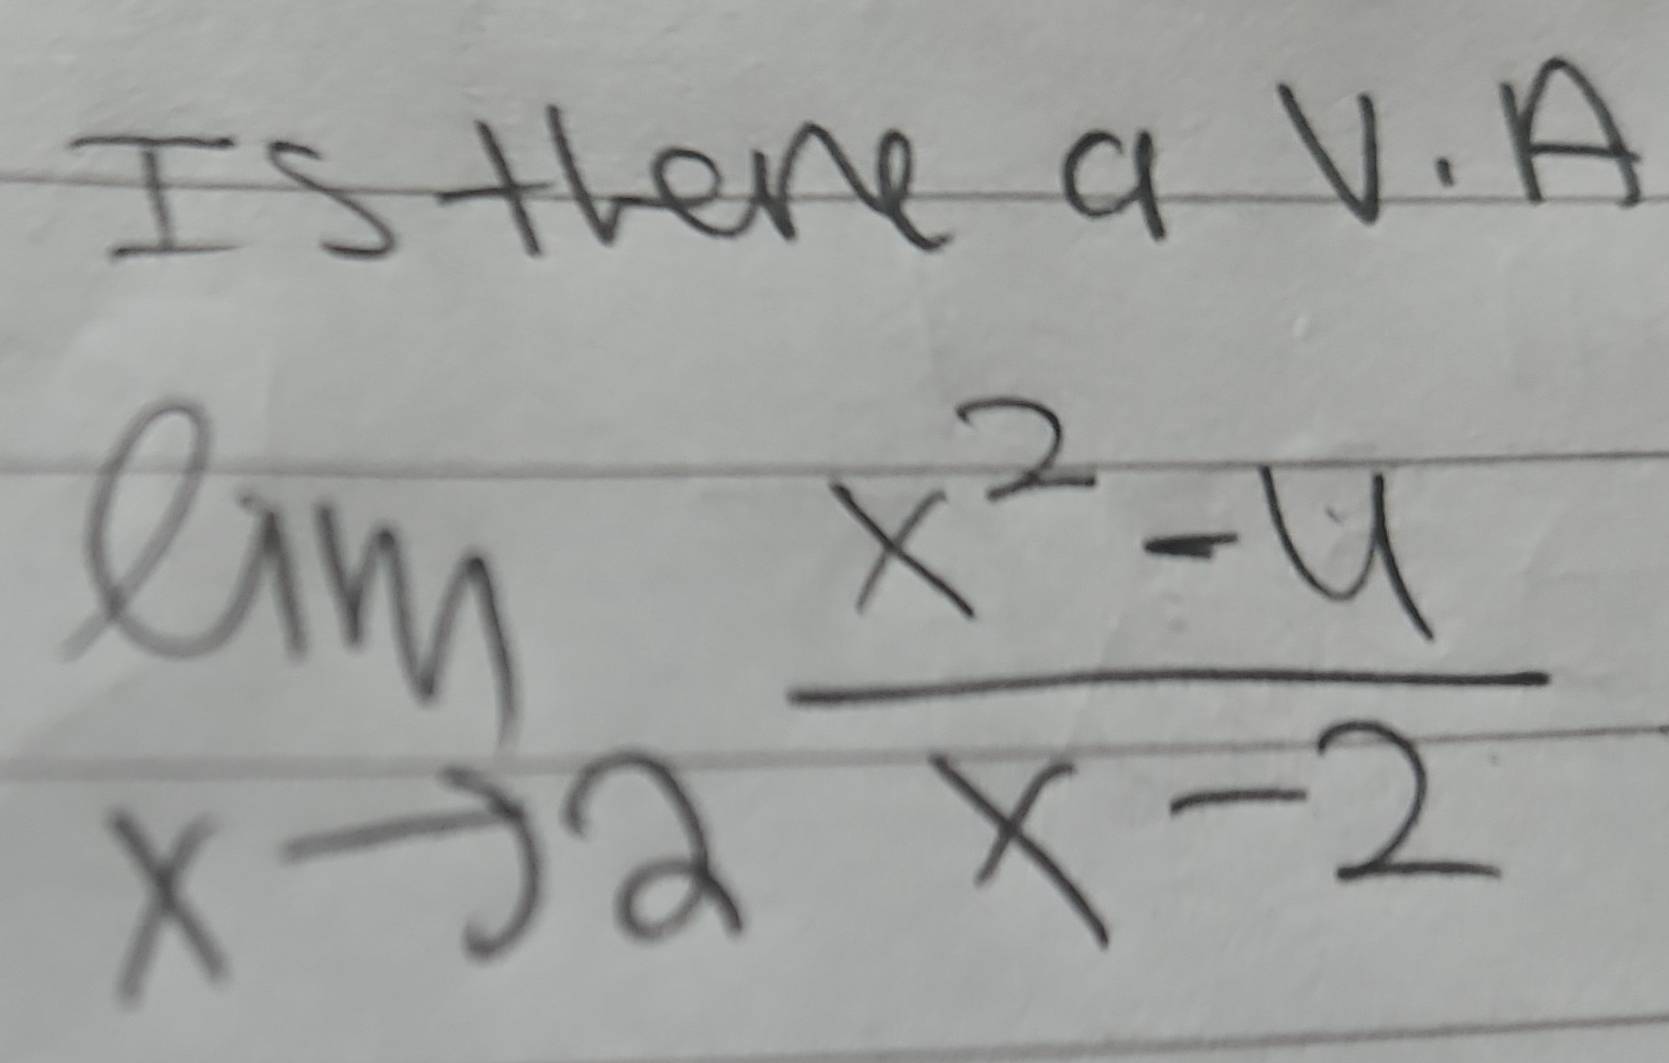 Is there a V.A
lim x²-4
x→2 x-2